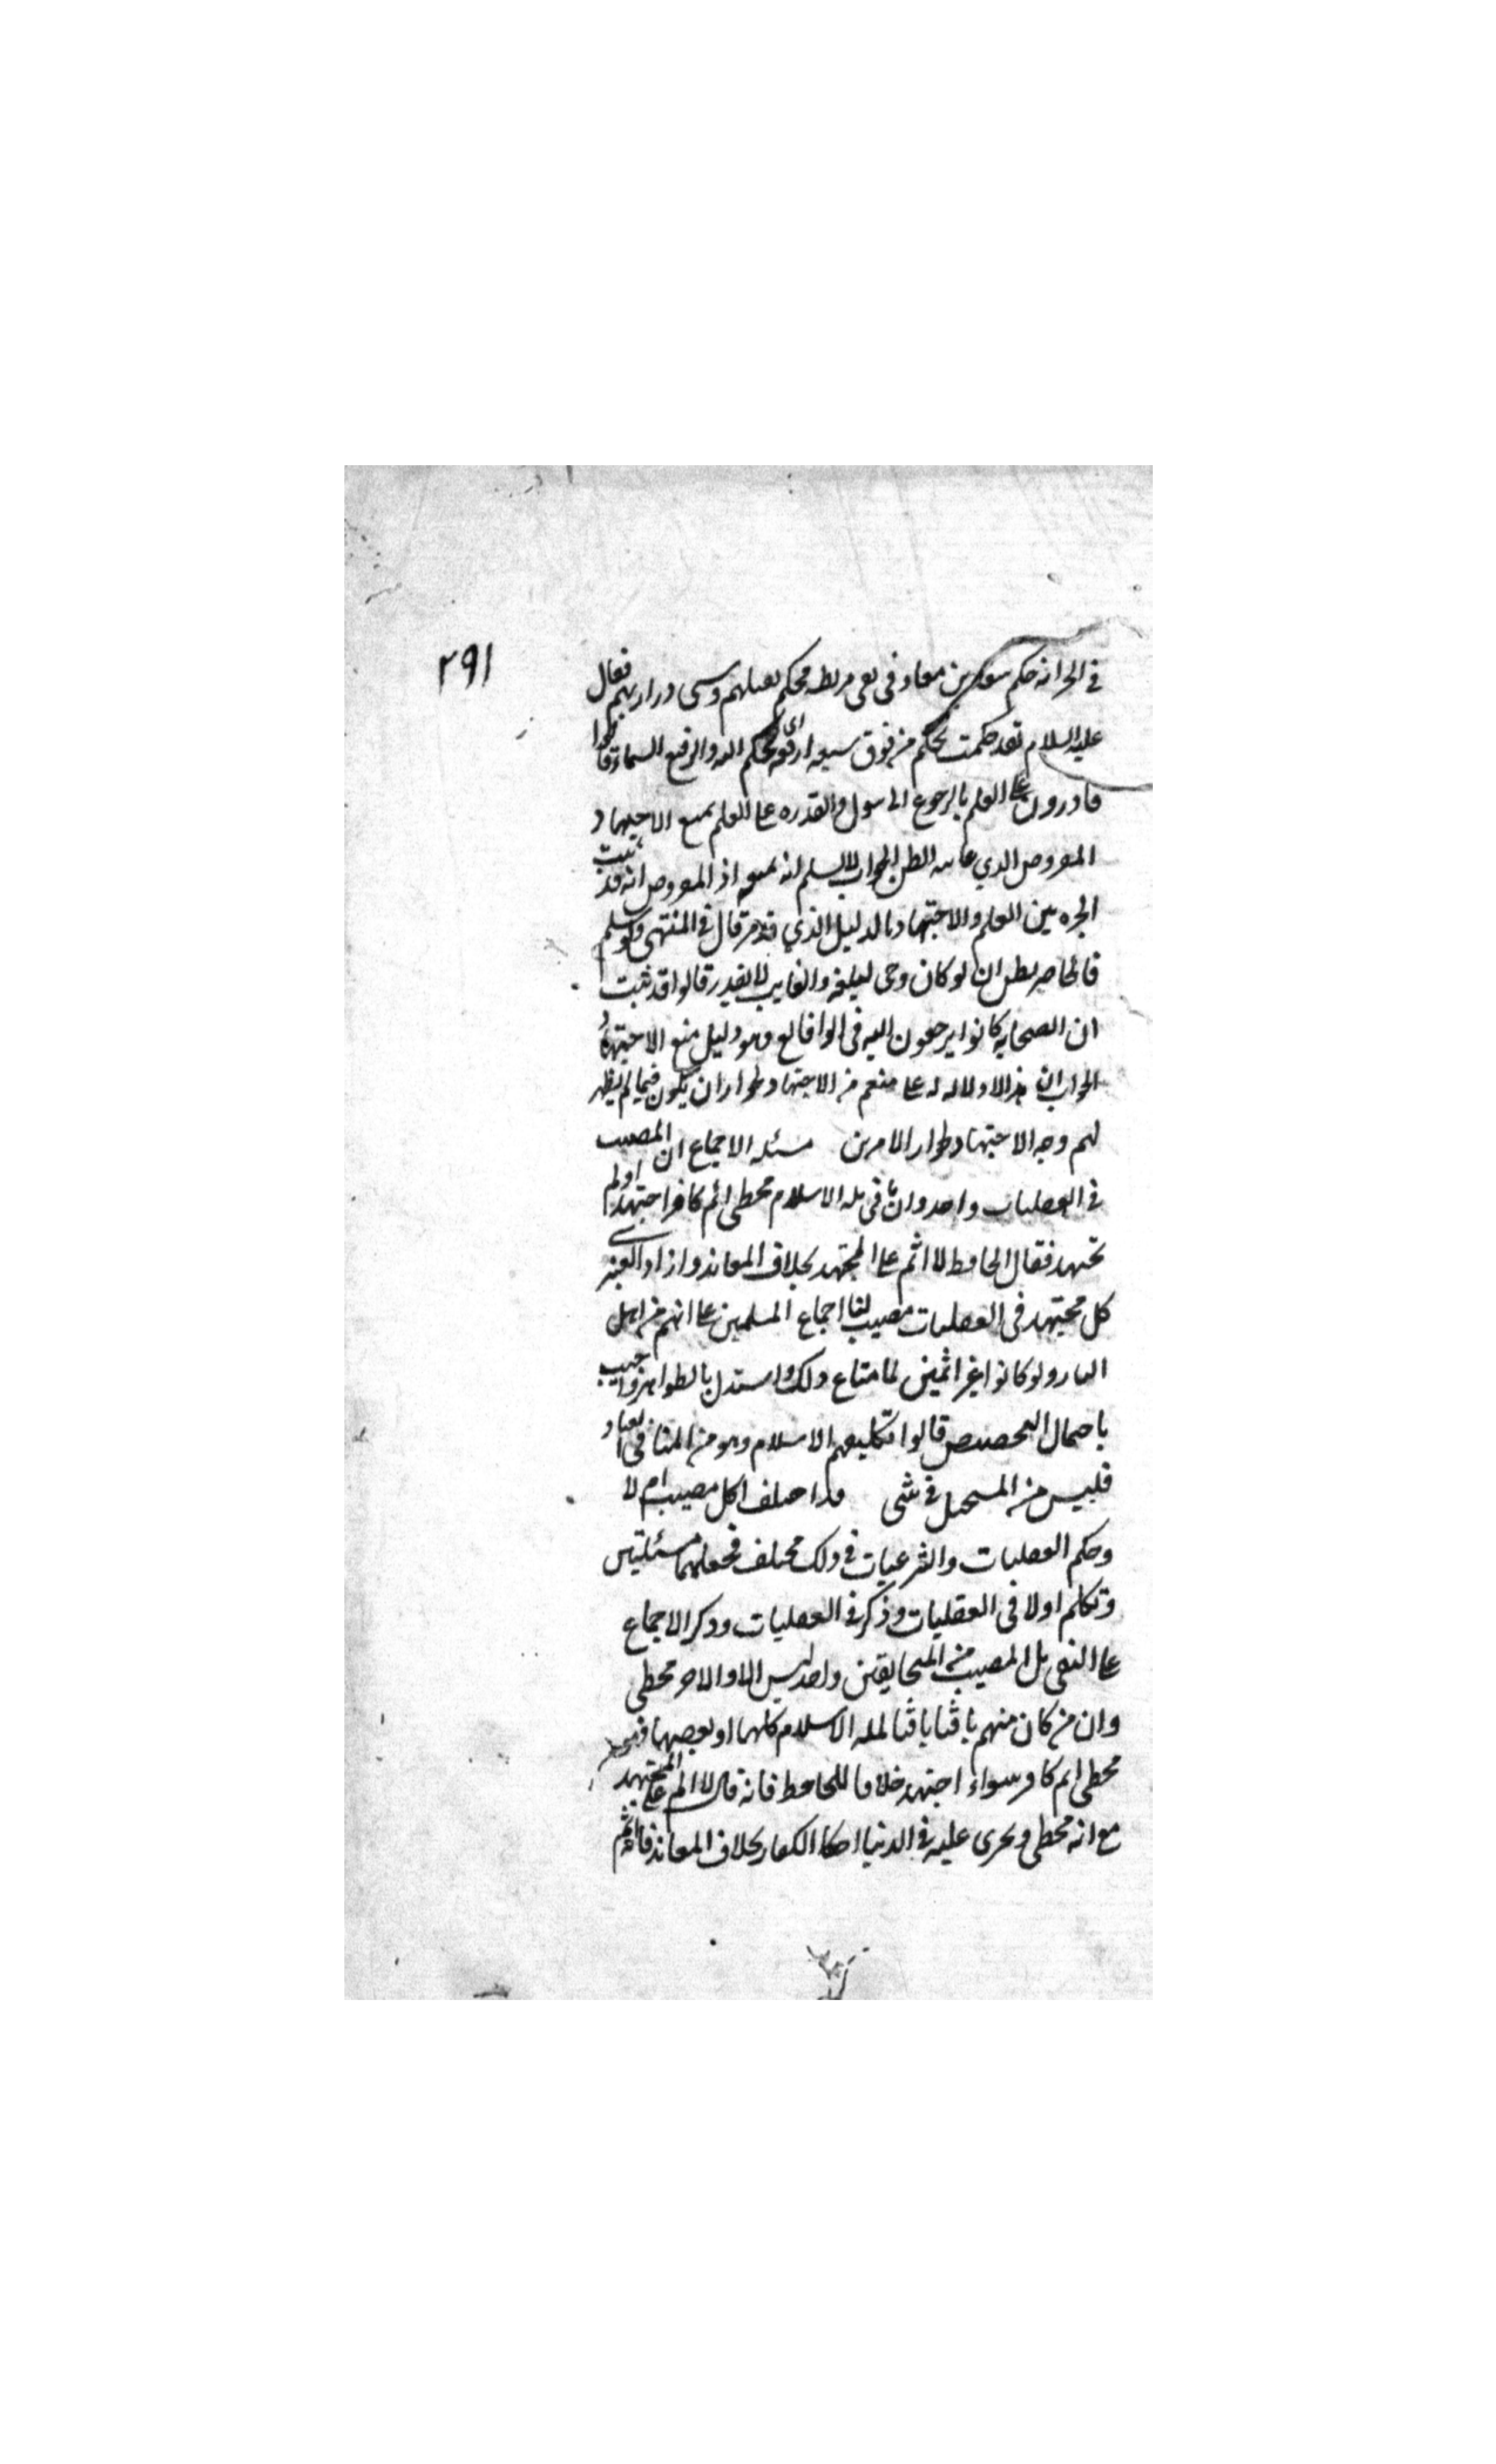 ٢٩١
في الخبر انه حكم سعد بن معاذ في بني قريظة فحكم بقتلهم وسبى ذراريهم فقال
عليه السلام لقد حكمت بحكم من فوق سبعة ارقعة اى بحكم الله والرقيع السماء قالوا
قادرون على العلم بالرجوع الى الرسول والقدرة على العلم يمنع الاجتهاد
المفروض الذي غايته الظن الجواب لا نسلم انه يمنعه اذ المفروض انه قد ثبت
الخيرة بين العلم والاجتهاد بالدليل الذي قد مر قال في المنتهى ولو سلم
فالحاضر يظن ان لو كان وحى لبلغه والغايب لا يقدر قالوا قد ثبت
ان الصحابة كانوا يرجعون اليه في الوقائع وهو دليل منع الاجتهاد
الجواب ان هذا لا دلالة له على منعهم من الاجتهاد لجواز ان يكون فيما لم يظهر
لهم وجه الاجتهاد ولجواز الامرين مسئلة الاجماع ان المصيب
في العقليات واحد وان نافى ملة الاسلام مخطى اثم كافر اجتهد او لم
يجتهد فقال الجاحظ لا اثم على المجتهد بخلاف المعاند وزاد العنبرى
كل مجتهد في العقليات مصيب لنا اجماع المسلمين على انهم من اهل
النار ولو كانوا غير اثمين لما ساغ ذلك واستدل بالظواهر واجيب
باحتمال التخصيص قالوا تكليفهم الاسلام وهو من المنافي
فليس من المستحيل في شى قد اختلف اكل مصيب ام لا
وحكم العقليات والشرعيات في ذلك مختلف فجعلهما مسئلتين
وتكلم اولا في العقليات وذكر في العقليات وذكر الاجماع
على النفى بل المصيب من المتخالفين واحد ليس الا والاخر مخطى
وان من كان منهم نافيا لملة الاسلام كلها او بعضها فهو
مخطى اثم كافر سواء اجتهد خلافا للجاحظ فانه قال لا اثم على المجتهد
مع انه مخطى ويجرى عليه في الدنيا احكام الكفار بخلاف المعاند فانه اثم